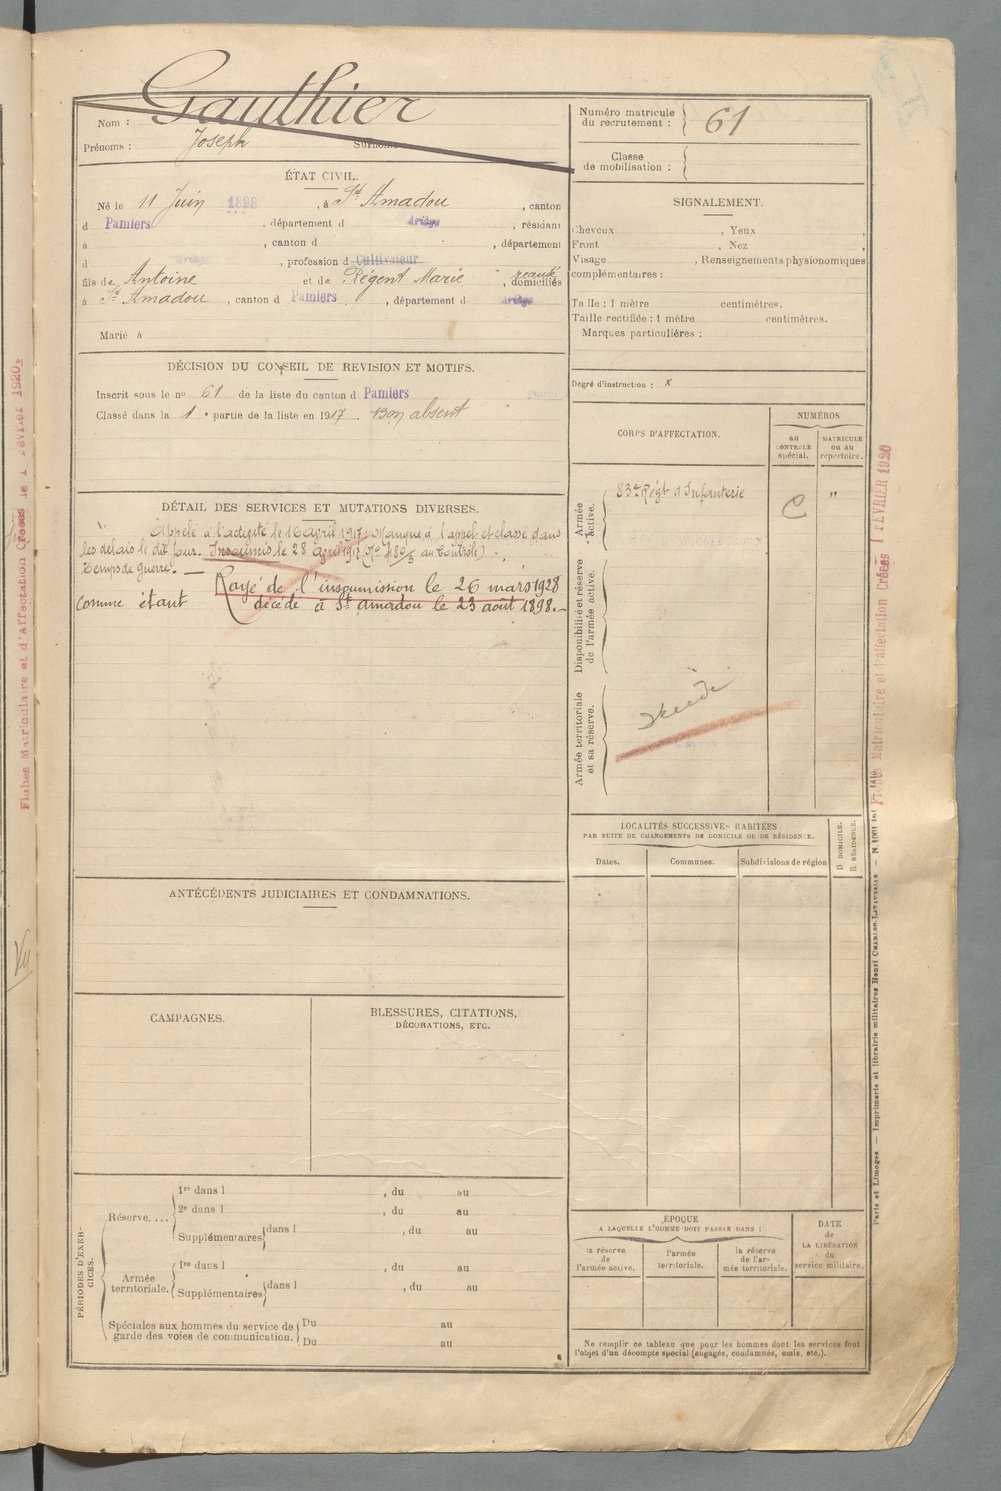 Nom : Gauthier
Prénoms : Joseph Surnoms
Numéro matricule du recrutement : 61
Classe de mobilisation :
ÉTAT CIVIL.
Né le 11 Juin 1898, à St Amadou, canton
d Pamiers, département d Ariège, résidant
à , canton d , département
d Ariège, profession d Cultivateur
fils de Antoine et de Régent Marie, domiciliés
à St Amadou, canton d Pamiers, département d Ariège
Marié à
SIGNALEMENT.
Cheveux , Yeux ,
Front , Nez ,
Visage , Renseignements physionomiques
complémentaires :
Taille : 1 mètre centimètres.
Taille rectifiée : 1 mètre centimètres.
Marques particulières :
Degré d'instruction : x
DÉCISION DU CONSEIL DE REVISION ET MOTIFS.
Inscrit sous le no 61 de la liste du canton d Pamiers
Classé dans la 1e partie de la liste en 1917. Bon absent
DÉTAIL DES SERVICES ET MUTATIONS DIVERSES.
Appelé à l'activité le 16 avril 1917. Manque à l'appel et classé dans
les délais le dit jour. Insoumis le 28 avril 1917 au Contrôle)
Temps de guerre. —
Rayé de l'insoumission le 26 mars 1928
comme étant décédé à St amadou le 23 août 1898.—
CORPS D'AFFECTATION.
NUMÉROS
au CONTROLE spécial.
MATRICULE ou au répertoire.
Armée active.
83e Régt d'Infanterie C "
Disponibilité et réserve de l'armée active.
Armée territoriale et sa réserve.
LOCALITÉS SUCCESSIVES HABITÉES
PAR SUITE DE CHANGEMENTS DE DOMICILE OU DE RÉSIDENCE.
Dates. Communes. Subdivisions de région
D. DOMICILE.
R. RÉSIDENCE.
ANTÉCÉDENTS JUDICIAIRES ET CONDAMNATIONS.
CAMPAGNES.
BLESSURES, CITATIONS,
DÉCORATIONS, ETC.
PÉRIODES D'EXERCICES.
Réserve....
1re dans l , du au
2e dans l , du au
Supplémentaires dans l , du au
Armée territoriale.
1re dans l , du au
Supplémentaires dans l , du au
Spéciales aux hommes du service de garde des voies de communication.
Du au
Du au
ÉPOQUE
A LAQUELLE L'HOMME DOIT PASSER DANS :
la réserve de l'armée active.
l'armée territoriale.
la réserve de l'armée territoriale.
DATE de LA LIBÉRATION du service militaire.
Ne remplir ce tableau que pour les hommes dont les services font
l'objet d'un décompte spécial (engagés, condamnés, omis, etc.).
Fiches Matriculaire et d'affectation Créées 1 FÉVRIER 1920
Fiches Matriculaire et d'Affectation Créées le 1 Février 1920
Paris et Limoges — Imprimerie et librairie militaires Henri CHARLES-LAVAUZELLE